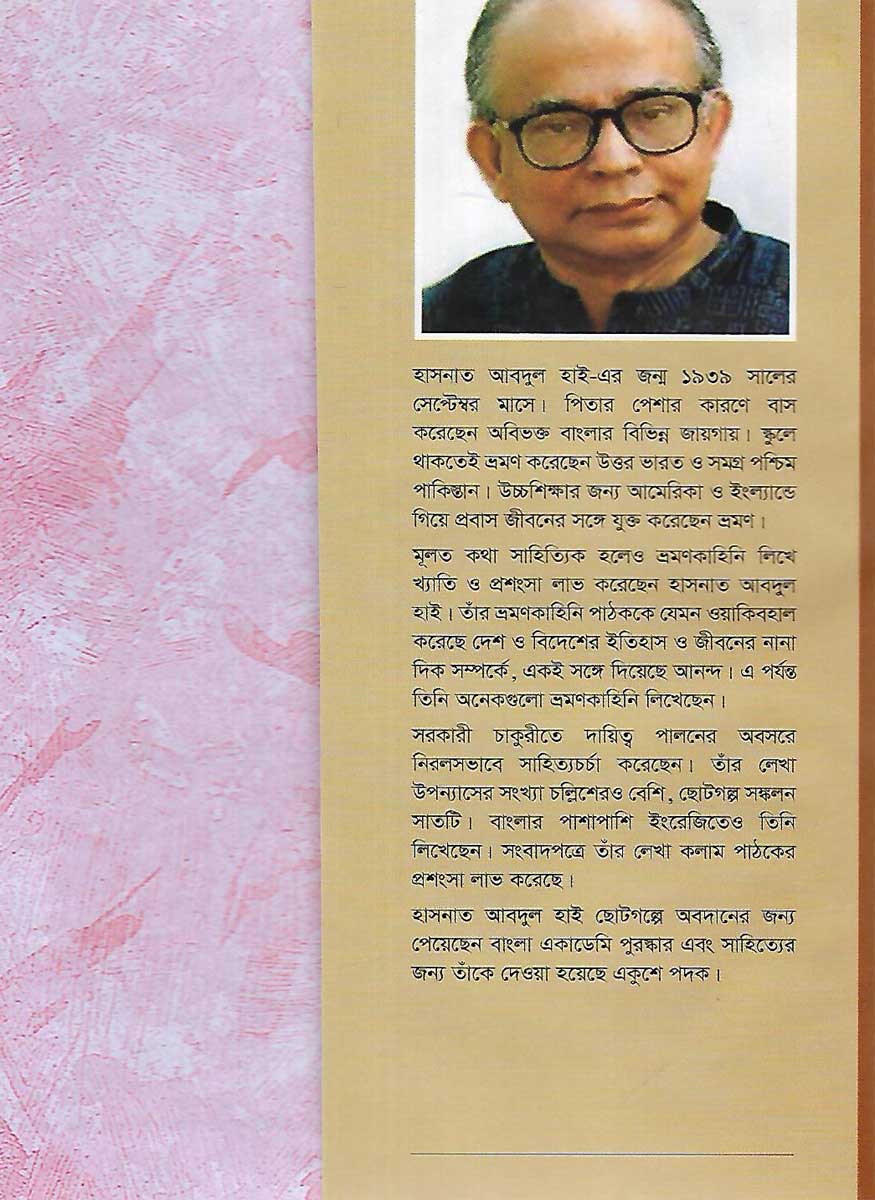 হাসনাত আবদুল হাই-এর জন্ম ১৯৩৯ সালের
সেপ্টেম্বর মাসে। পিতার পেশার কারণে বাস
করেছেন অবিভক্ত বাংলার বিভিন্ন জায়গায়। স্কুলে
থাকতেই ভ্রমণ করেছেন উত্তর ভারত ও সমগ্র পশ্চিম
পাকিস্তান। উচ্চশিক্ষার জন্য আমেরিকা ও ইংল্যান্ডে
গিয়ে প্রবাস জীবনের সঙ্গে যুক্ত করেছেন ভ্রমণ।
মূলত কথা সাহিত্যিক হলেও ভ্রমণকাহিনি লিখে
খ্যাতি ও প্রশংসা লাভ করেছেন হাসনাত আবদুল
হাই। তাঁর ভ্রমণকাহিনি পাঠককে যেমন ওয়াকিবহাল
করেছে দেশ ও বিদেশের ইতিহাস ও জীবনের নানা
দিক সম্পর্কে, একই সঙ্গে দিয়েছে আনন্দ। এ পর্যন্ত
তিনি অনেকগুলো ভ্রমণকাহিনি লিখেছেন।
সরকারী চাকুরীতে দায়িত্ব পালনের অবসরে
নিরলসভাবে সাহিত্যচর্চা করেছেন। তাঁর লেখা
উপন্যাসের সংখ্যা চল্লিশেরও বেশি, ছোটগল্প সঙ্কলন
সাতটি। বাংলার পাশাপাশি ইংরেজিতেও তিনি
লিখেছেন। সংবাদপত্রে তাঁর লেখা কলাম পাঠকের
প্রশংসা লাভ করেছে।
হাসনাত আবদুল হাই ছোটগল্পে অবদানের জন্য
পেয়েছেন বাংলা একাডেমি পুরস্কার এবং সাহিত্যের
জন্য তাঁকে দেওয়া হয়েছে একুশে পদক।